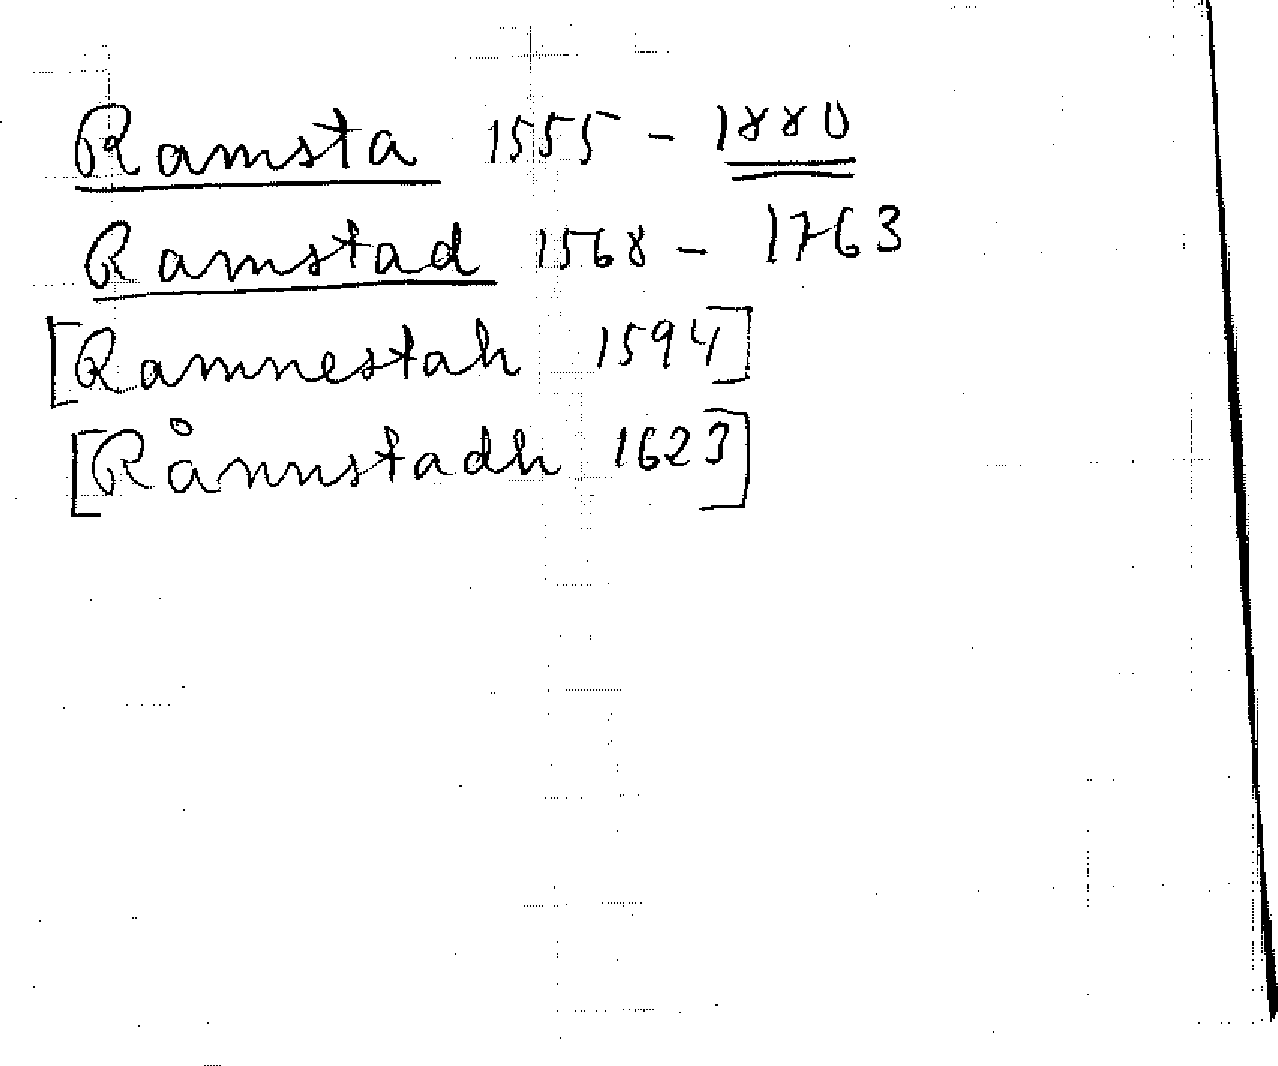 Ramsta 1555 - 1880
Ramstad 1568 - 1763
[Ramnestah 1594]
[Rånnstadh 1623]